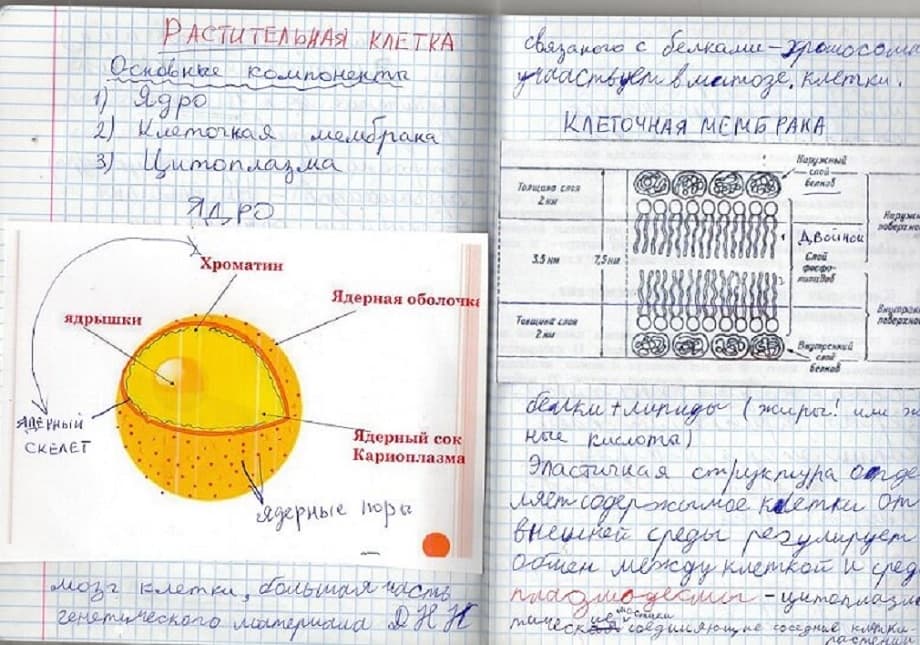 РАСТИТЕЛЬНАЯ КЛЕТКА
Основные компоненты
1) Ядро
2) Клеточная мембрана
3) Цитоплазма
ЯДРО
Хроматин
Ядерная оболочка
ядрышки
ЯДЕРНЫЙ
СКЕЛЕТ
Ядерный сок
Кариоплазма
ядерные поры
мозг клетки, большая часть
генетического материала ДНК
связаного с белками - хромосом
участвует в митозе, клетки.
КЛЕТОЧНАЯ МЕМБРАНА
Толщина слоя
2 нм
3.5 нм
7,5 нм
Толщина слоя
2 нм
Наружный
слой
белков
Двойной
Слой
фосфо-
липидов
Внутренний
слой
белков
Наружн
поверхнос
Внутрення
поверхнос
белки + липиды (жиры! или ж
ные кислота)
Эластичная структура отде
ляет содержимое клетки от
внешней среды регулирует
обмен между клеткой и сред
плазмодесмы - цитоплазм
мостики
соединяющие соседние клетки
растений